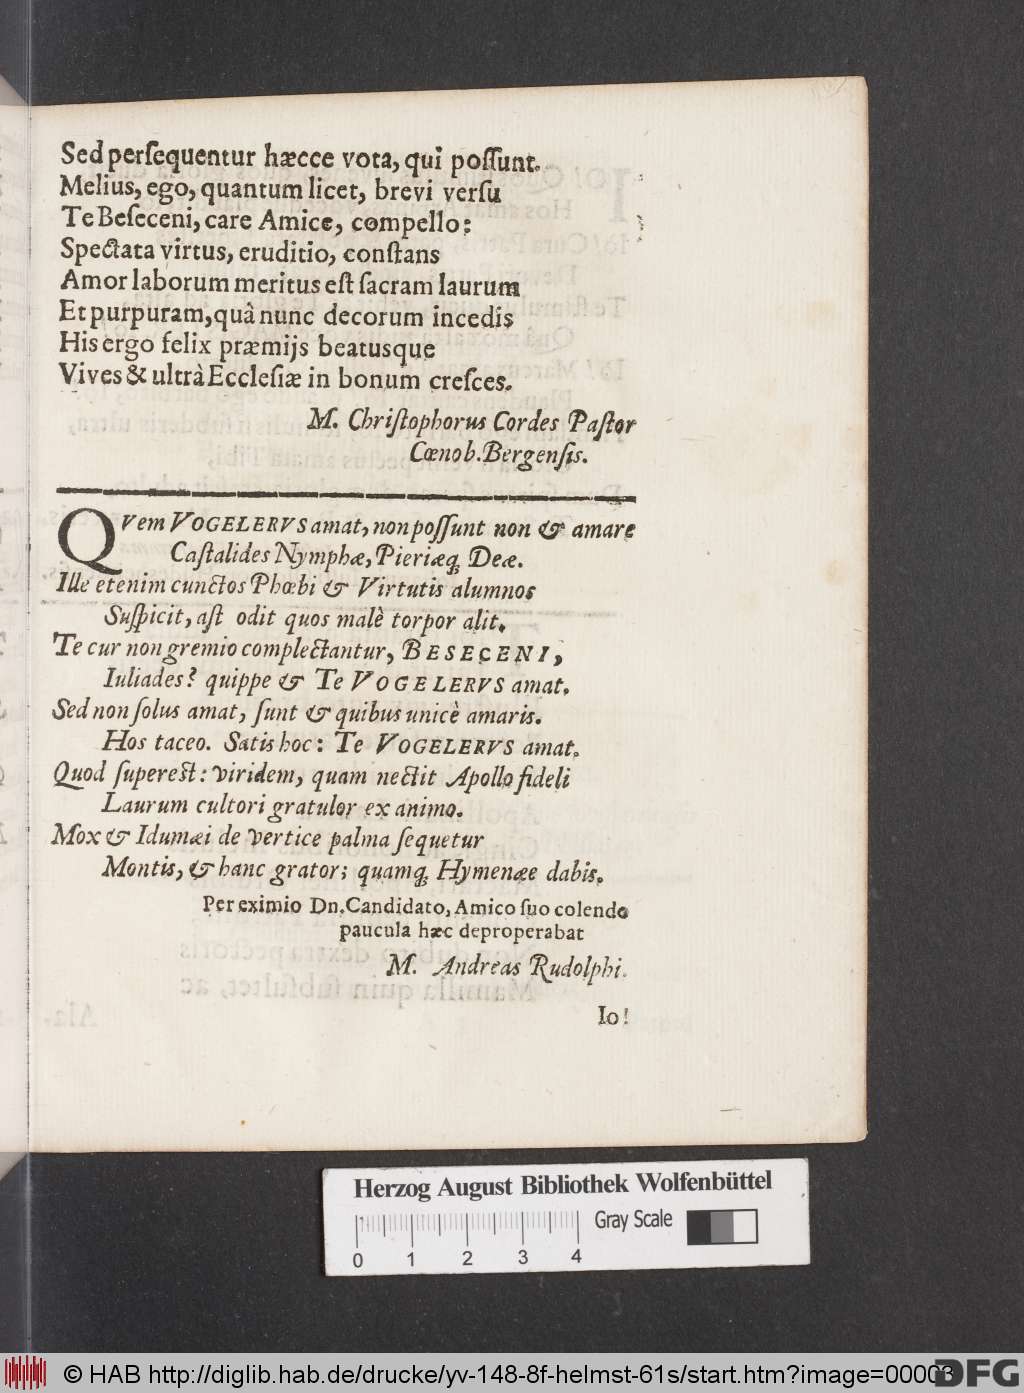 Sed perſequentur hæcce vota, qui poſſunt.
Melius, ego, quantum licet, brevi verſu
Te Beſeceni, care Amice, compello:
Spectata virtus, eruditio, conſtans
Amor laborum meritus eſt ſacram laurum
Et purpuram, quâ nunc decorum incedis
His ergo felix præmijs beatusque
Vives & ultrà Eccleſiæ in bonum creſces.
M. Chriſtophorus Cordes Paſtor
Cœnob. Bergenſis.
QVem VOGELERVS amat, non poſſunt non & amare
Caſtalides Nymphæ, Pieriæq́; Deæ.
Ille etenim cunctos Phœbi & Virtutis alumnos
Suſpicit, aſt odit quos malè torpor alit.
Te cur non gremio complectantur, BESECENI,
Iuliades? quippe & Te VOGELERVS amat.
Sed non ſolus amat, ſunt & quibus unicè amaris.
Hos taceo. Satis hoc: Te VOGELERVS amat.
Quod ſupereſt: viridem, quam nectit Apollo fideli
Laurum cultori gratulor ex animo.
Mox & Idumæi de vertice palma ſequetur
Montis, & hanc grator; quamq́; Hymenæe dabis.
Per eximio Dn. Candidato, Amico ſuo colendo
paucula hæc deproperabat
M. Andreas Rudolphi.
Io!
Herzog August Bibliothek Wolfenbüttel
Gray Scale
0 1 2 3 4
© HAB http://diglib.hab.de/drucke/yv-148-8f-helmst-61s/start.htm?image=00003
DFG